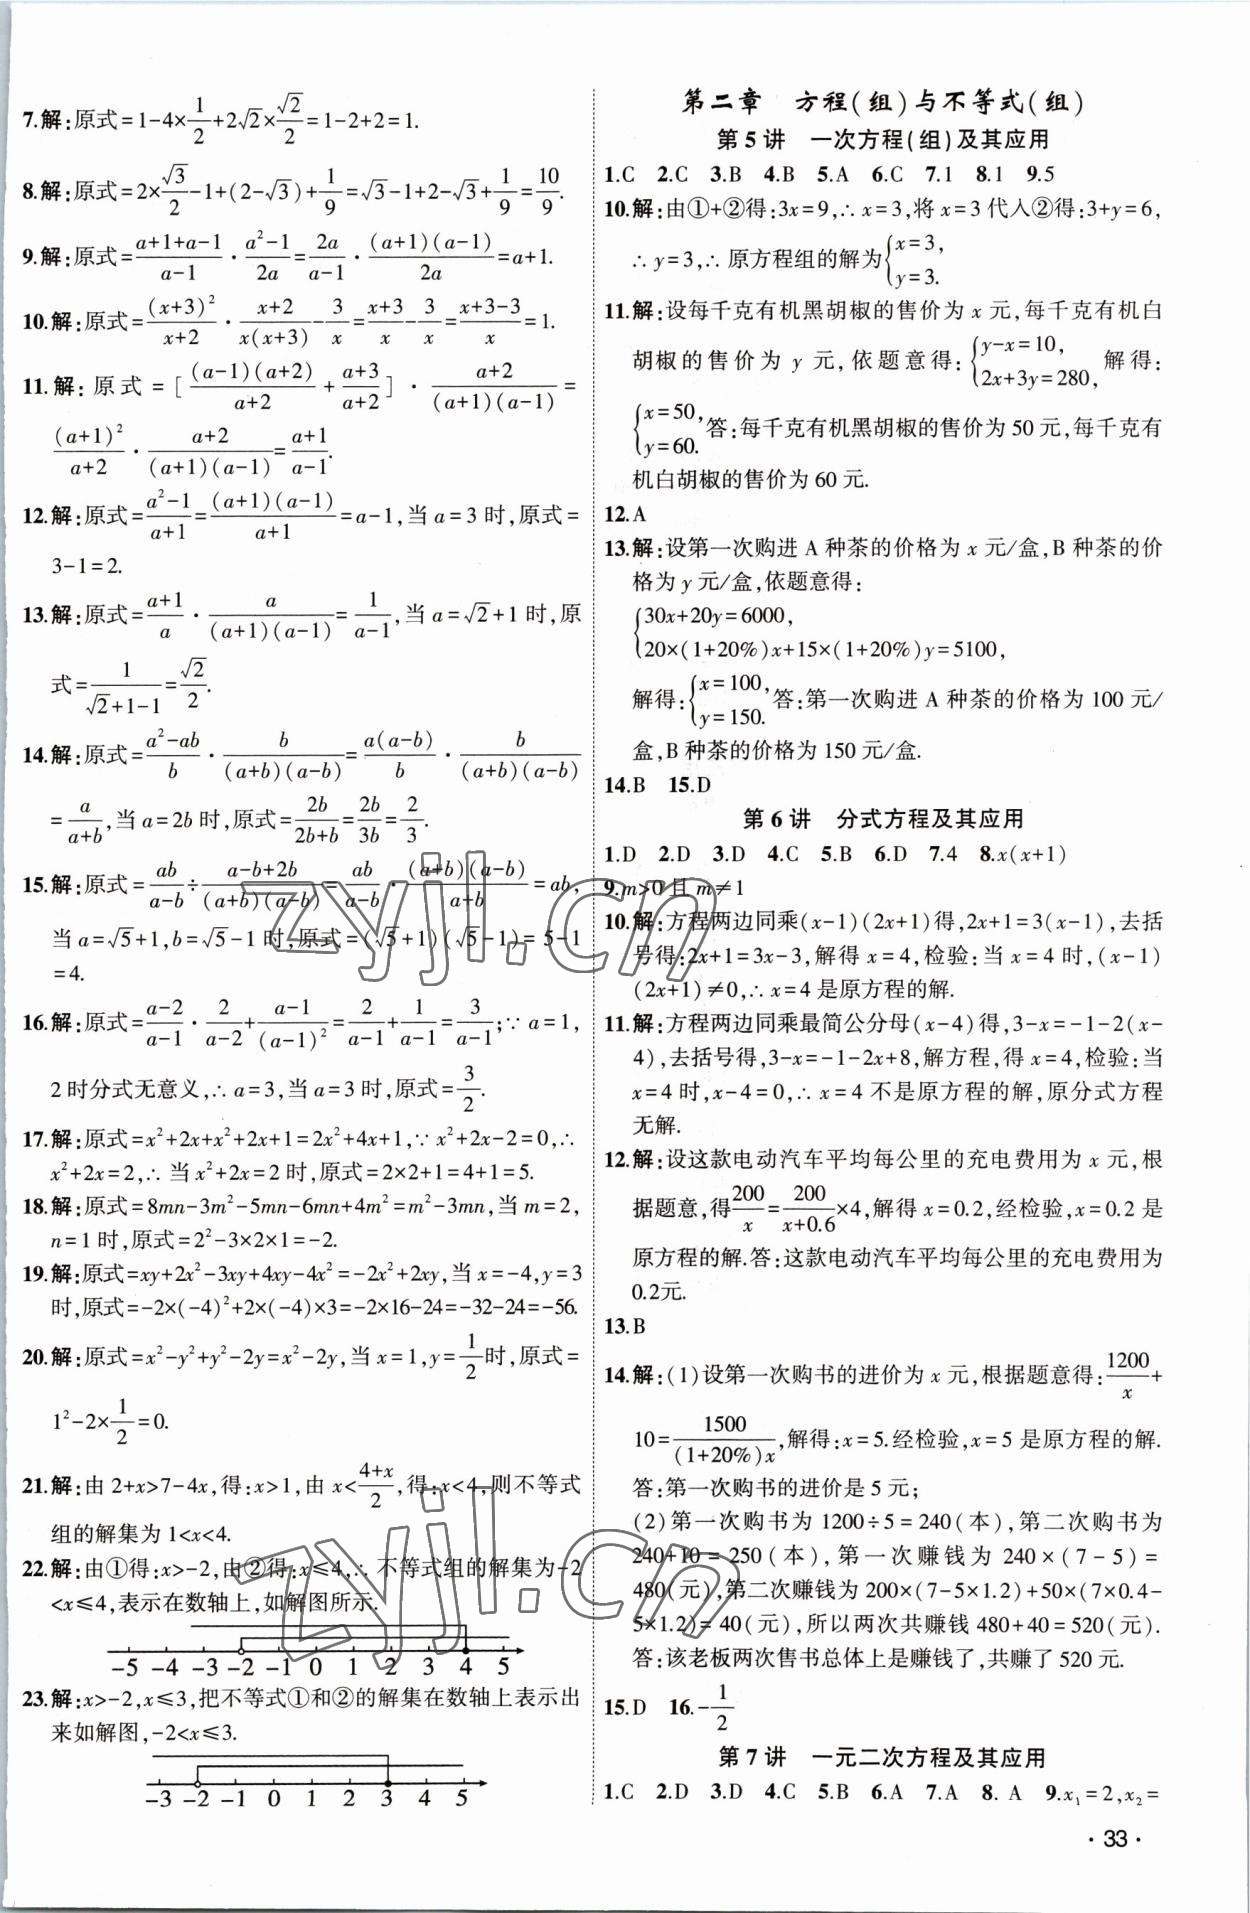 7.解:原式=1-4×1/2+2√2×√2/2=1-2+2=1.
8.解:原式=2×√3/2-1+(2-√3)+1/9=√3-1+2-√3+1/9=10/9.
9.解:原式=(a+1+a-1)/(a-1)·(a²-1)/2a=2a/(a-1)·(a+1)(a-1)/2a=a+1.
10.解:原式=(x+3)²/(x+2)·(x+2)/x(x+3)-3/x=(x+3)/x-3/x=(x+3-3)/x=1.
11.解:原式=[(a-1)(a+2)/(a+2)+(a+3)/(a+2)]·(a+2)/(a+1)(a-1)=
(a+1)²/(a+2)·(a+2)/(a+1)(a-1)=(a+1)/(a-1).
12.解:原式=(a²-1)/(a+1)=(a+1)(a-1)/(a+1)=a-1,当a=3时,原式=
3-1=2.
13.解:原式=(a+1)/a·a/(a+1)(a-1)=1/(a-1),当a=√2+1时,原
式=1/(√2+1-1)=√2/2.
14.解:原式=(a²-ab)/b·b/(a+b)(a-b)=a(a-b)/b·b/(a+b)(a-b)
=a/(a+b),当a=2b时,原式=2b/(2b+b)=2b/3b=2/3.
15.解:原式=ab/(a-b)÷(a-b+2b)/(a+b)(a-b)=ab/(a-b)·(a+b)(a-b)/(a+b)=ab,
当a=√5+1,b=√5-1时,原式=(√5+1)(√5-1)=5-1
=4.
16.解:原式=(a-2)/(a-1)·2/(a-2)+(a-1)/(a-1)²=2/(a-1)+1/(a-1)=3/(a-1);∵a=1,
2时分式无意义,∴a=3,当a=3时,原式=3/2.
17.解:原式=x²+2x+x²+2x+1=2x²+4x+1,∵x²+2x-2=0,∴
x²+2x=2,∴当x²+2x=2时,原式=2×2+1=4+1=5.
18.解:原式=8mn-3m²-5mn-6mn+4m²=m²-3mn,当m=2,
n=1时,原式=2²-3×2×1=-2.
19.解:原式=xy+2x²-3xy+4xy-4x²=-2x²+2xy,当x=-4,y=3
时,原式=-2×(-4)²+2×(-4)×3=-2×16-24=-32-24=-56.
20.解:原式=x²-y²+y²-2y=x²-2y,当x=1,y=1/2时,原式=
1²-2×1/2=0.
21.解:由2+x>7-4x,得:x>1,由x<(4+x)/2,得:x<4,则不等式
组的解集为1<x<4.
22.解:由①得:x>-2,由②得:x≤4,∴不等式组的解集为-2
<x≤4,表示在数轴上,如解图所示.
-5 -4 -3 -2 -1 0 1 2 3 4 5
23.解:x>-2,x≤3,把不等式①和②的解集在数轴上表示出
来如解图,-2<x≤3.
-3 -2 -1 0 1 2 3 4 5
第二章 方程(组)与不等式(组)
第5讲 一次方程(组)及其应用
1.C 2.C 3.B 4.B 5.A 6.C 7.1 8.1 9.5
10.解:由①+②得:3x=9,∴x=3,将x=3代入②得:3+y=6,
∴y=3,∴原方程组的解为{x=3, y=3.
11.解:设每千克有机黑胡椒的售价为x元,每千克有机白
胡椒的售价为y元,依题意得:{y-x=10, 2x+3y=280, 解得:
{x=50, y=60. 答:每千克有机黑胡椒的售价为50元,每千克有
机白胡椒的售价为60元.
12.A
13.解:设第一次购进A种茶的价格为x元/盒,B种茶的价
格为y元/盒,依题意得:
{30x+20y=6000,
20×(1+20%)x+15×(1+20%)y=5100,
解得:{x=100, y=150. 答:第一次购进A种茶的价格为100元/
盒,B种茶的价格为150元/盒.
14.B 15.D
第6讲 分式方程及其应用
1.D 2.D 3.D 4.C 5.B 6.D 7.4 8.x(x+1)
9.m>0且m≠1
10.解:方程两边同乘(x-1)(2x+1)得,2x+1=3(x-1),去括
号得:2x+1=3x-3,解得x=4,检验:当x=4时,(x-1)
(2x+1)≠0,∴x=4是原方程的解.
11.解:方程两边同乘最简公分母(x-4)得,3-x=-1-2(x-
4),去括号得,3-x=-1-2x+8,解方程,得x=4,检验:当
x=4时,x-4=0,∴x=4不是原方程的解,原分式方程
无解.
12.解:设这款电动汽车平均每公里的充电费用为x元,根
据题意,得200/x=200/(x+0.6)×4,解得x=0.2,经检验,x=0.2是
原方程的解.答:这款电动汽车平均每公里的充电费用为
0.2元.
13.B
14.解:(1)设第一次购书的进价为x元,根据题意得:1200/x+
10=1500/(1+20%)x,解得:x=5.经检验,x=5是原方程的解.
答:第一次购书的进价是5元;
(2)第一次购书为1200÷5=240(本),第二次购书为
240+10=250(本),第一次赚钱为240×(7-5)=
480(元),第二次赚钱为200×(7-5×1.2)+50×(7×0.4-
5×1.2)=40(元),所以两次共赚钱480+40=520(元).
答:该老板两次售书总体上是赚钱了,共赚了520元.
15.D 16.-1/2
第7讲 一元二次方程及其应用
1.C 2.D 3.D 4.C 5.B 6.A 7.A 8. A 9.x₁=2,x₂=
·33·
zyjl.cn
zyjl.cn